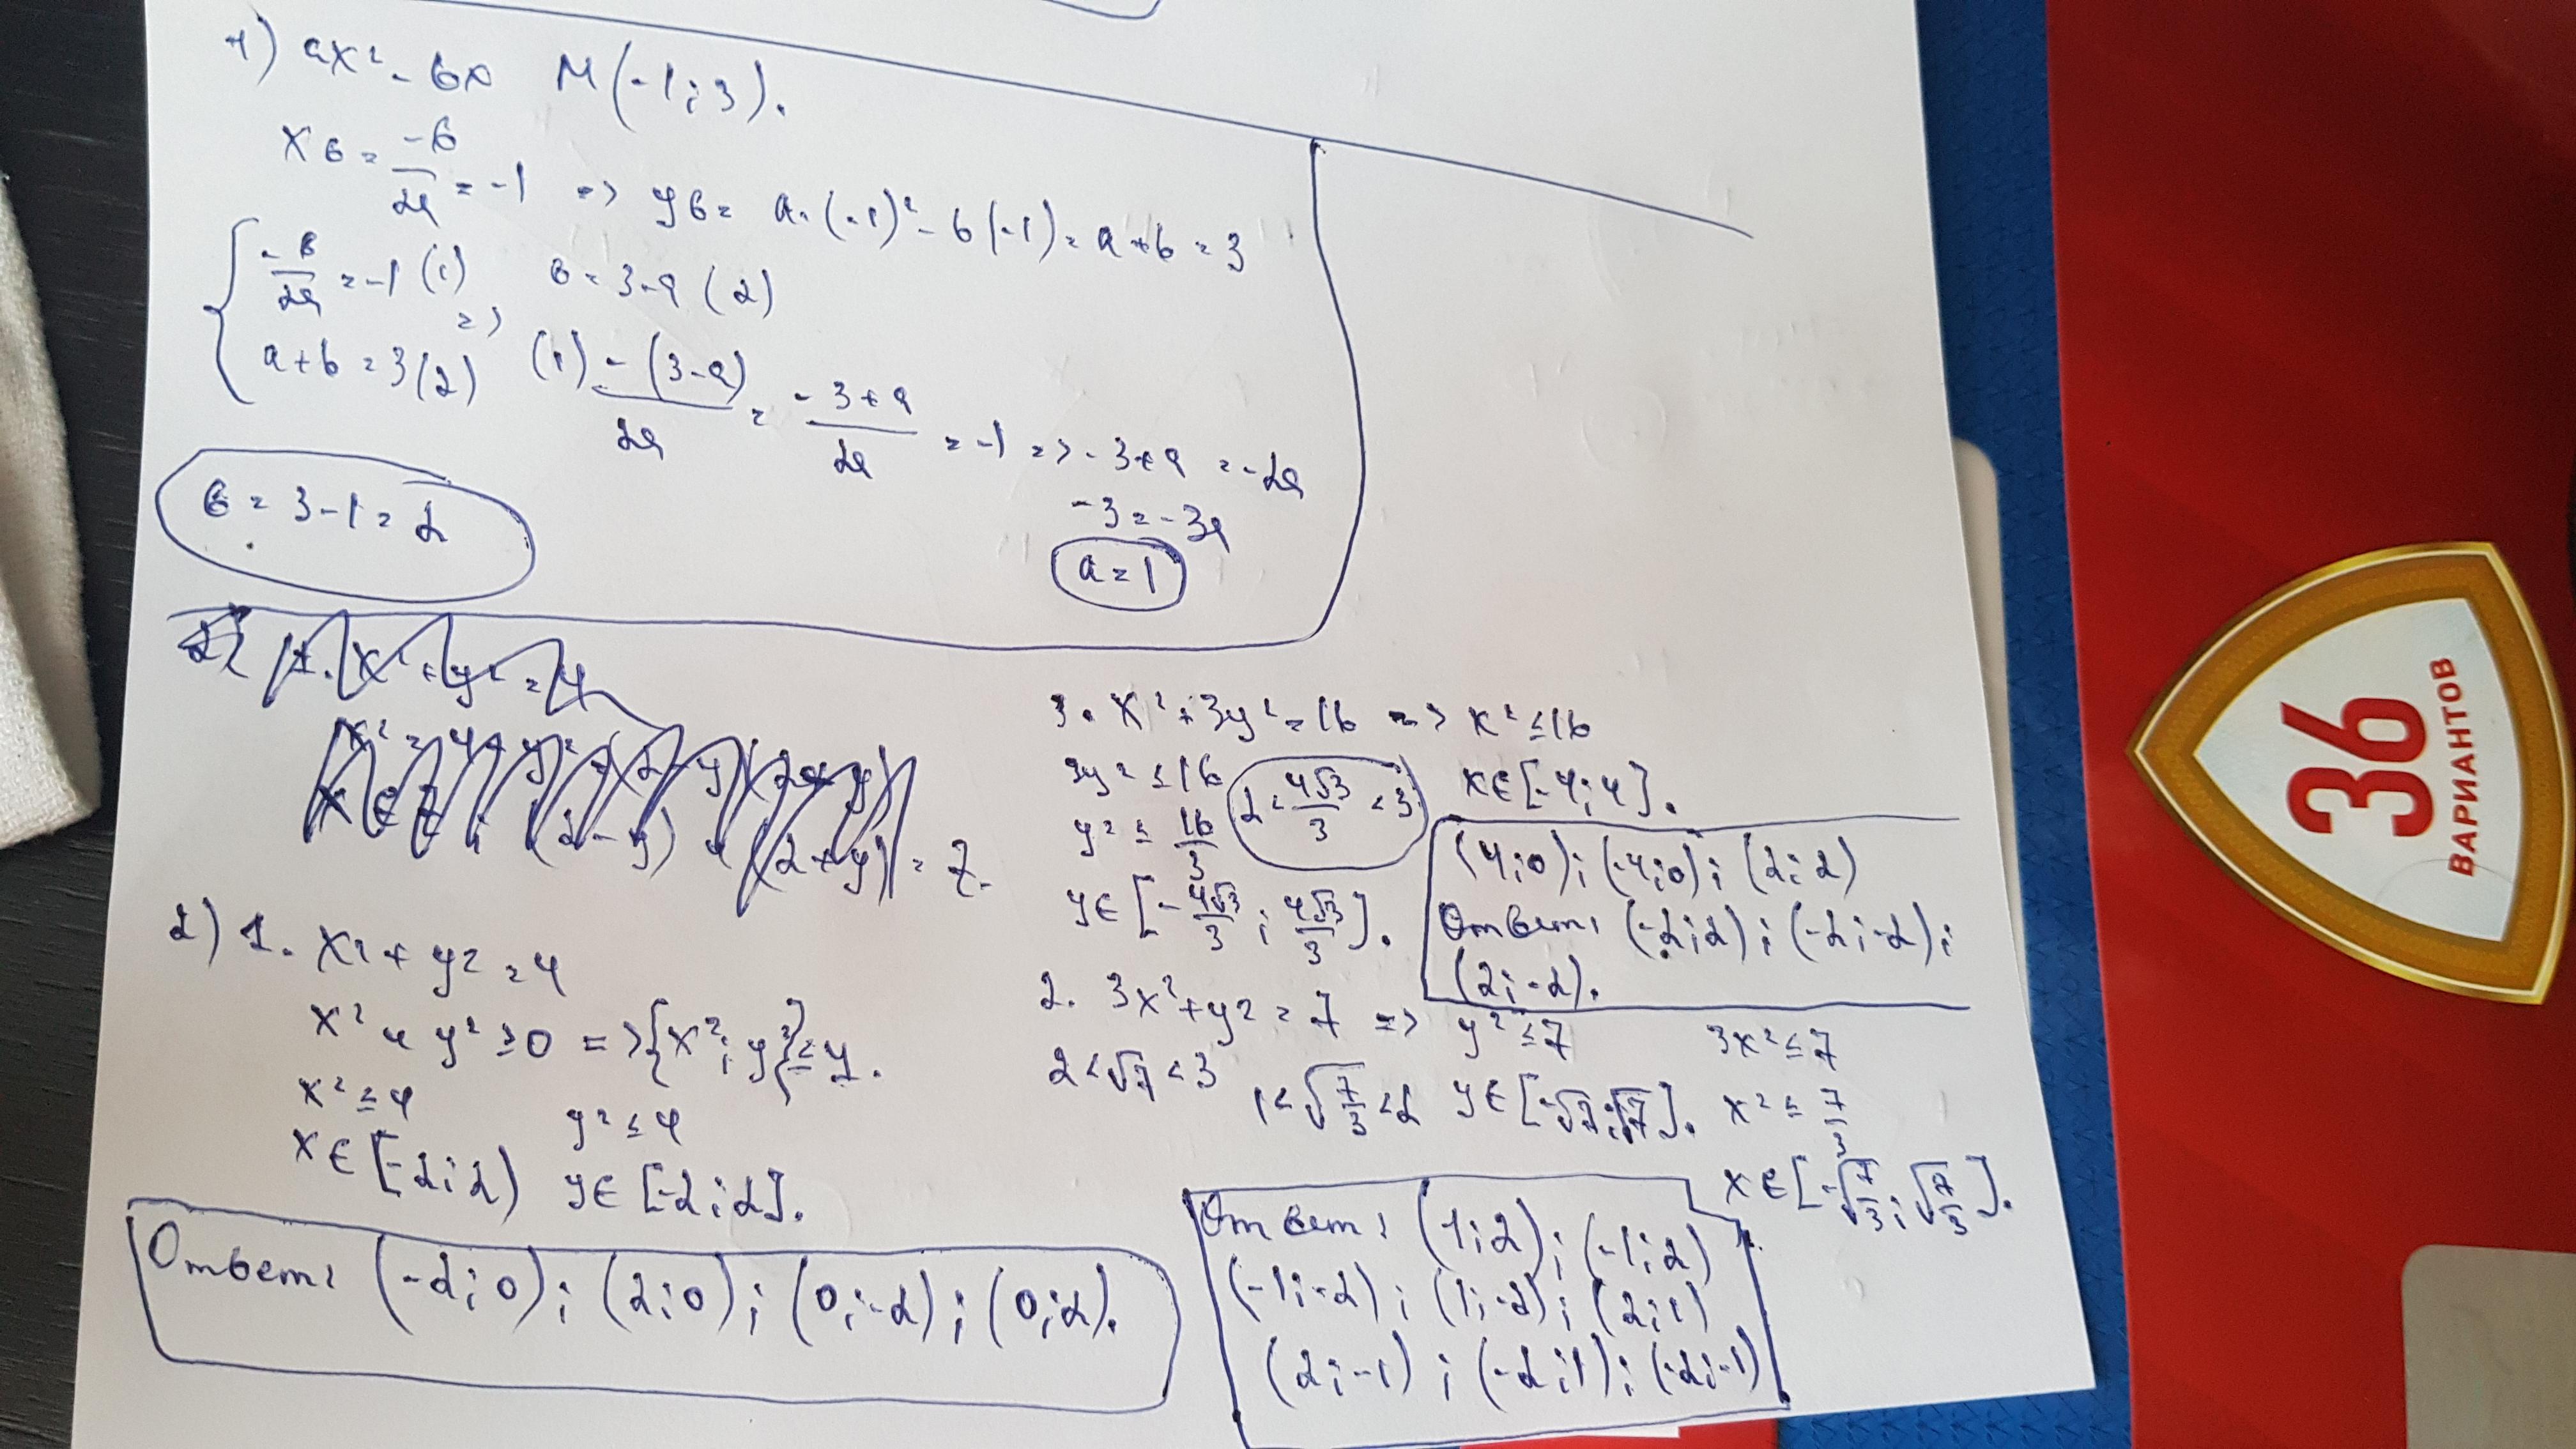 1) ax² - bx M(-1; 3).
xв = -b/2a = -1 => yв = a·(-1)² - b(-1) = a+b = 3
{ -b/2a = -1 (1) b = 3-a (2)
=>
a+b = 3 (2) (1) -(3-a)/2a = -3+a/2a = -1 => -3+a = -2a
-3 = -3a
b = 3-1 = 2
a = 1
2) 1. x²+y²=4
2) 1. x²+y²=4
x² и y² ≥ 0 => {x²; y²} ≤ 4.
x² ≤ 4 y² ≤ 4
x ∈ [-2; 2) y ∈ [-2; 2].
Ответ: (-2; 0); (2; 0); (0; -2); (0; 2).
3. x²+3y²=16 => x² ≤ 16
3y² ≤ 16 2 < 4√3/3 < 3 x ∈ [-4; 4].
y² ≤ 16/3
y ∈ [-4√3/3; 4√3/3].
(4; 0); (-4; 0); (2; 2)
Ответ: (-2; 2); (-2; -2);
(2; -2).
2. 3x²+y²=7 => y² ≤ 7 3x² ≤ 7
2 < √7 < 3 1 < √7/3 < 2 y ∈ [-√7; √7]. x² ≤ 7/3
x ∈ [-√7/3; √7/3].
Ответ: (1; 2); (-1; 2)
(-1; -2); (1; -2); (2; 1)
(2; -1); (-2; 1); (-2; -1)
36
ВАРИАНТОВ